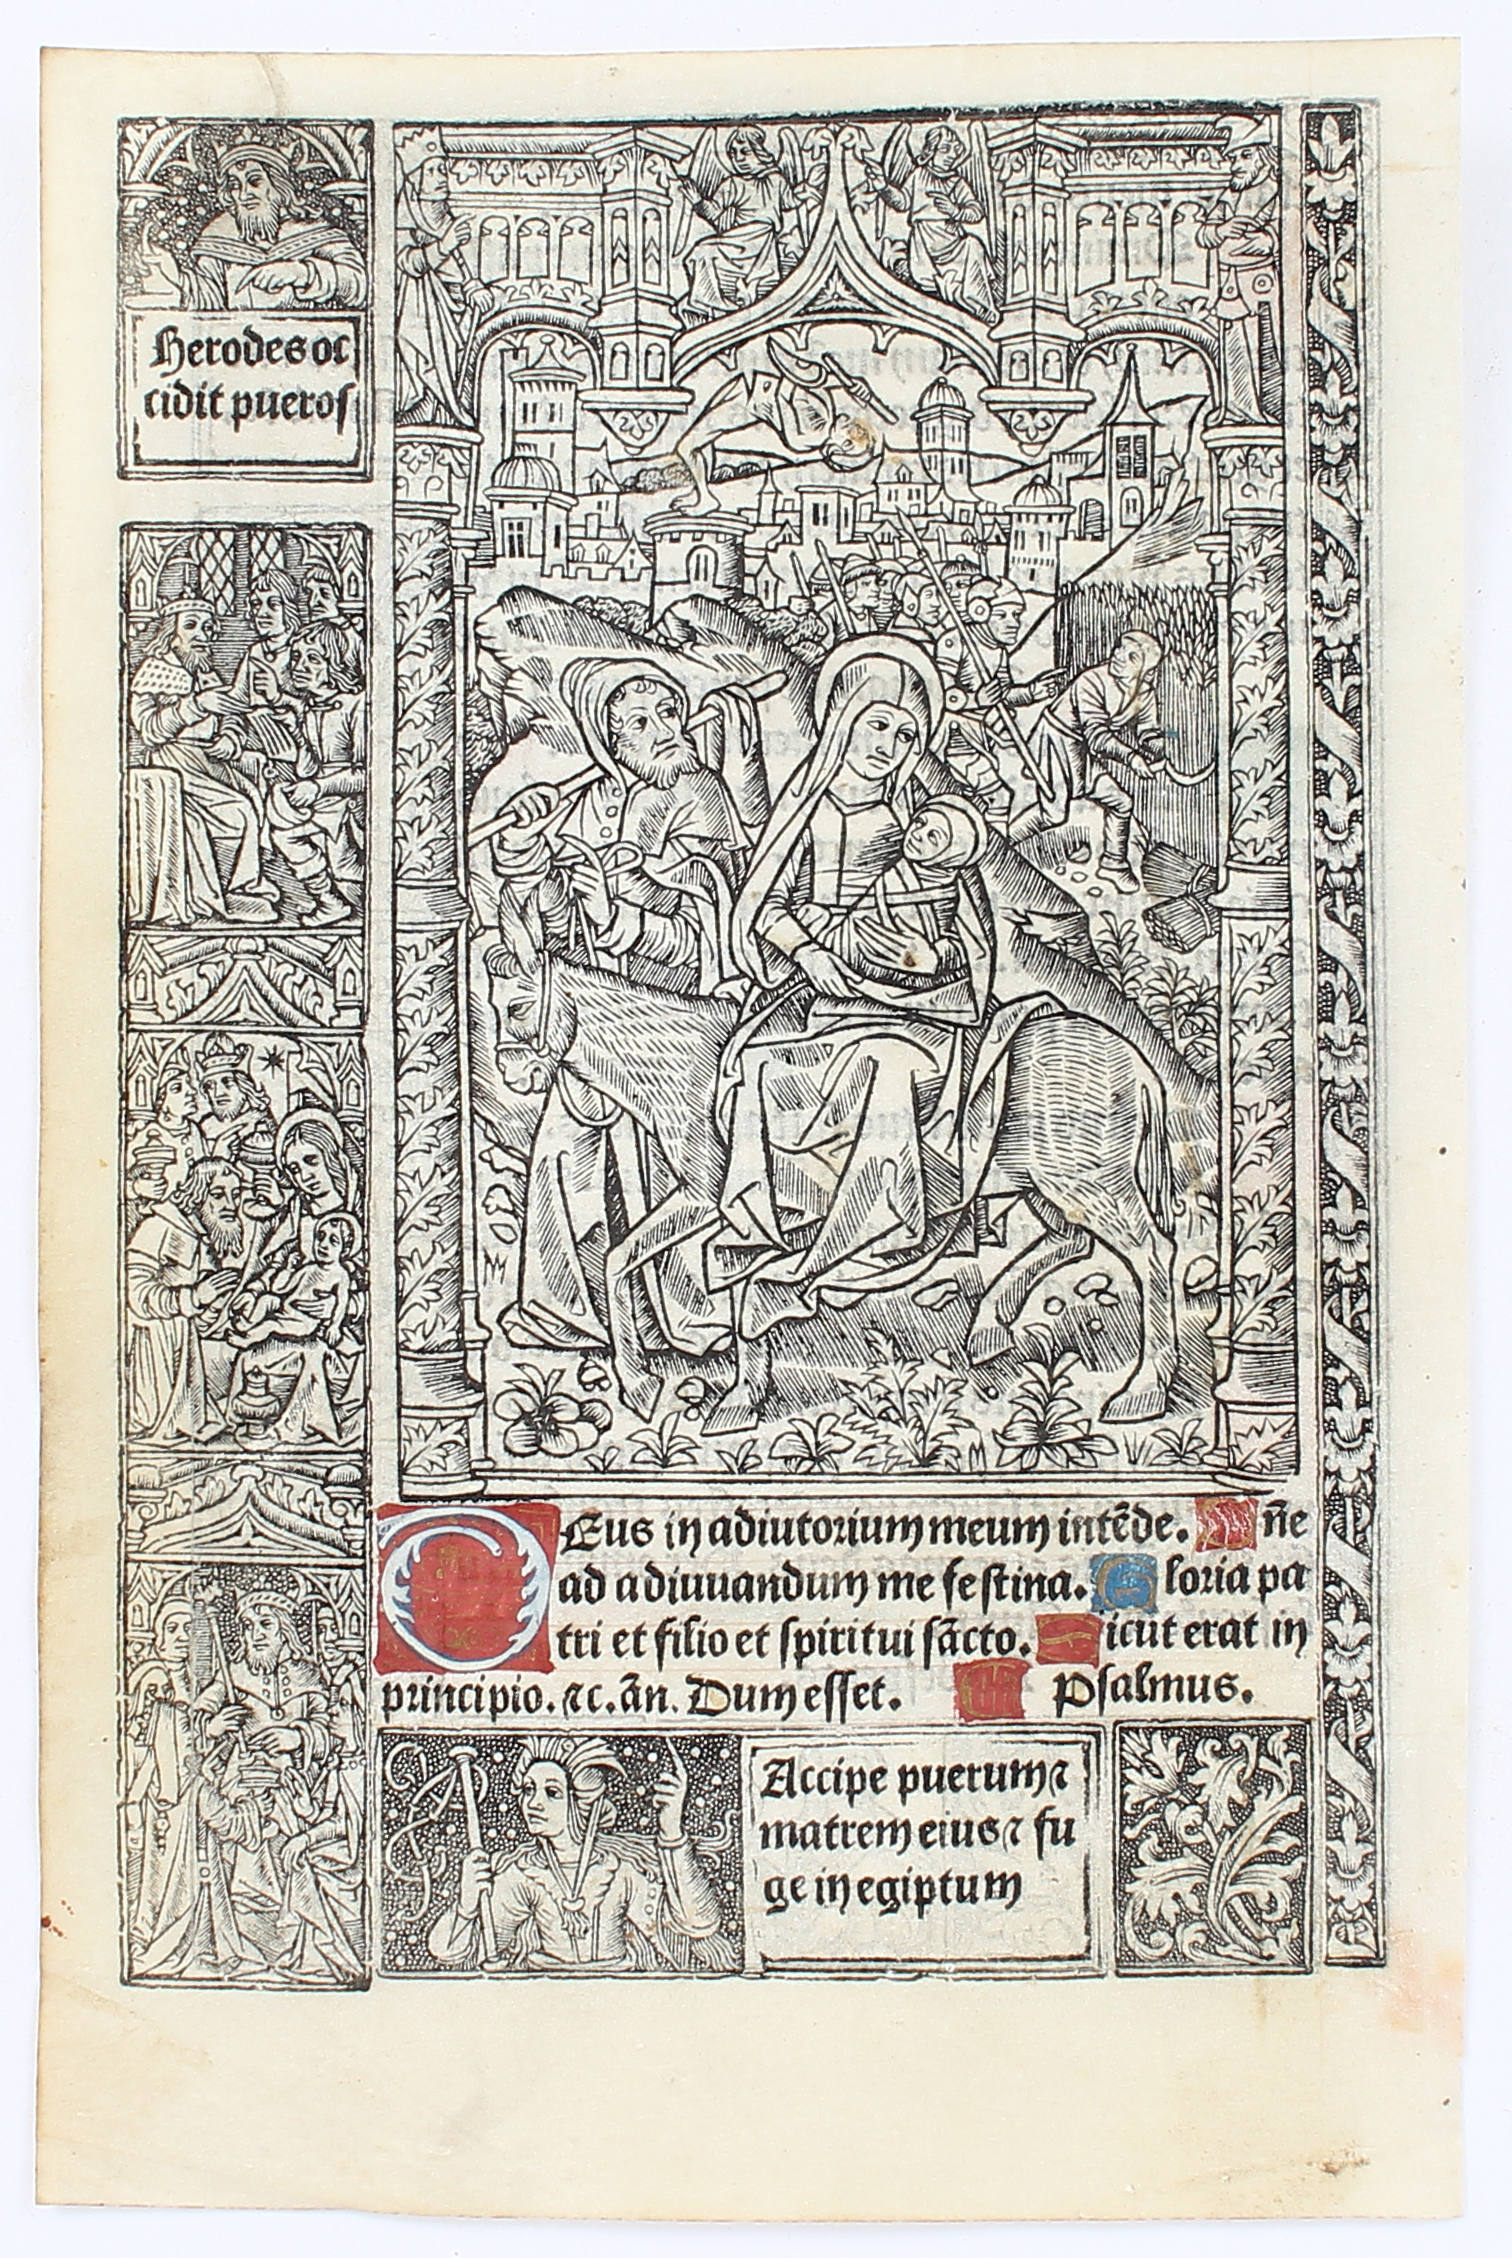 Herodes oc
cidit pueros
Deus in adiutorium meum intēde. Dn̄e
ad adiuuandum me festina. Gloria pa
tri et filio et spiritui sācto. Sicut erat in
principio. ⁊c. ān. Dum esset. Psalmus.
Accipe puerum ⁊
matrem eius ⁊ fu
ge in egiptum